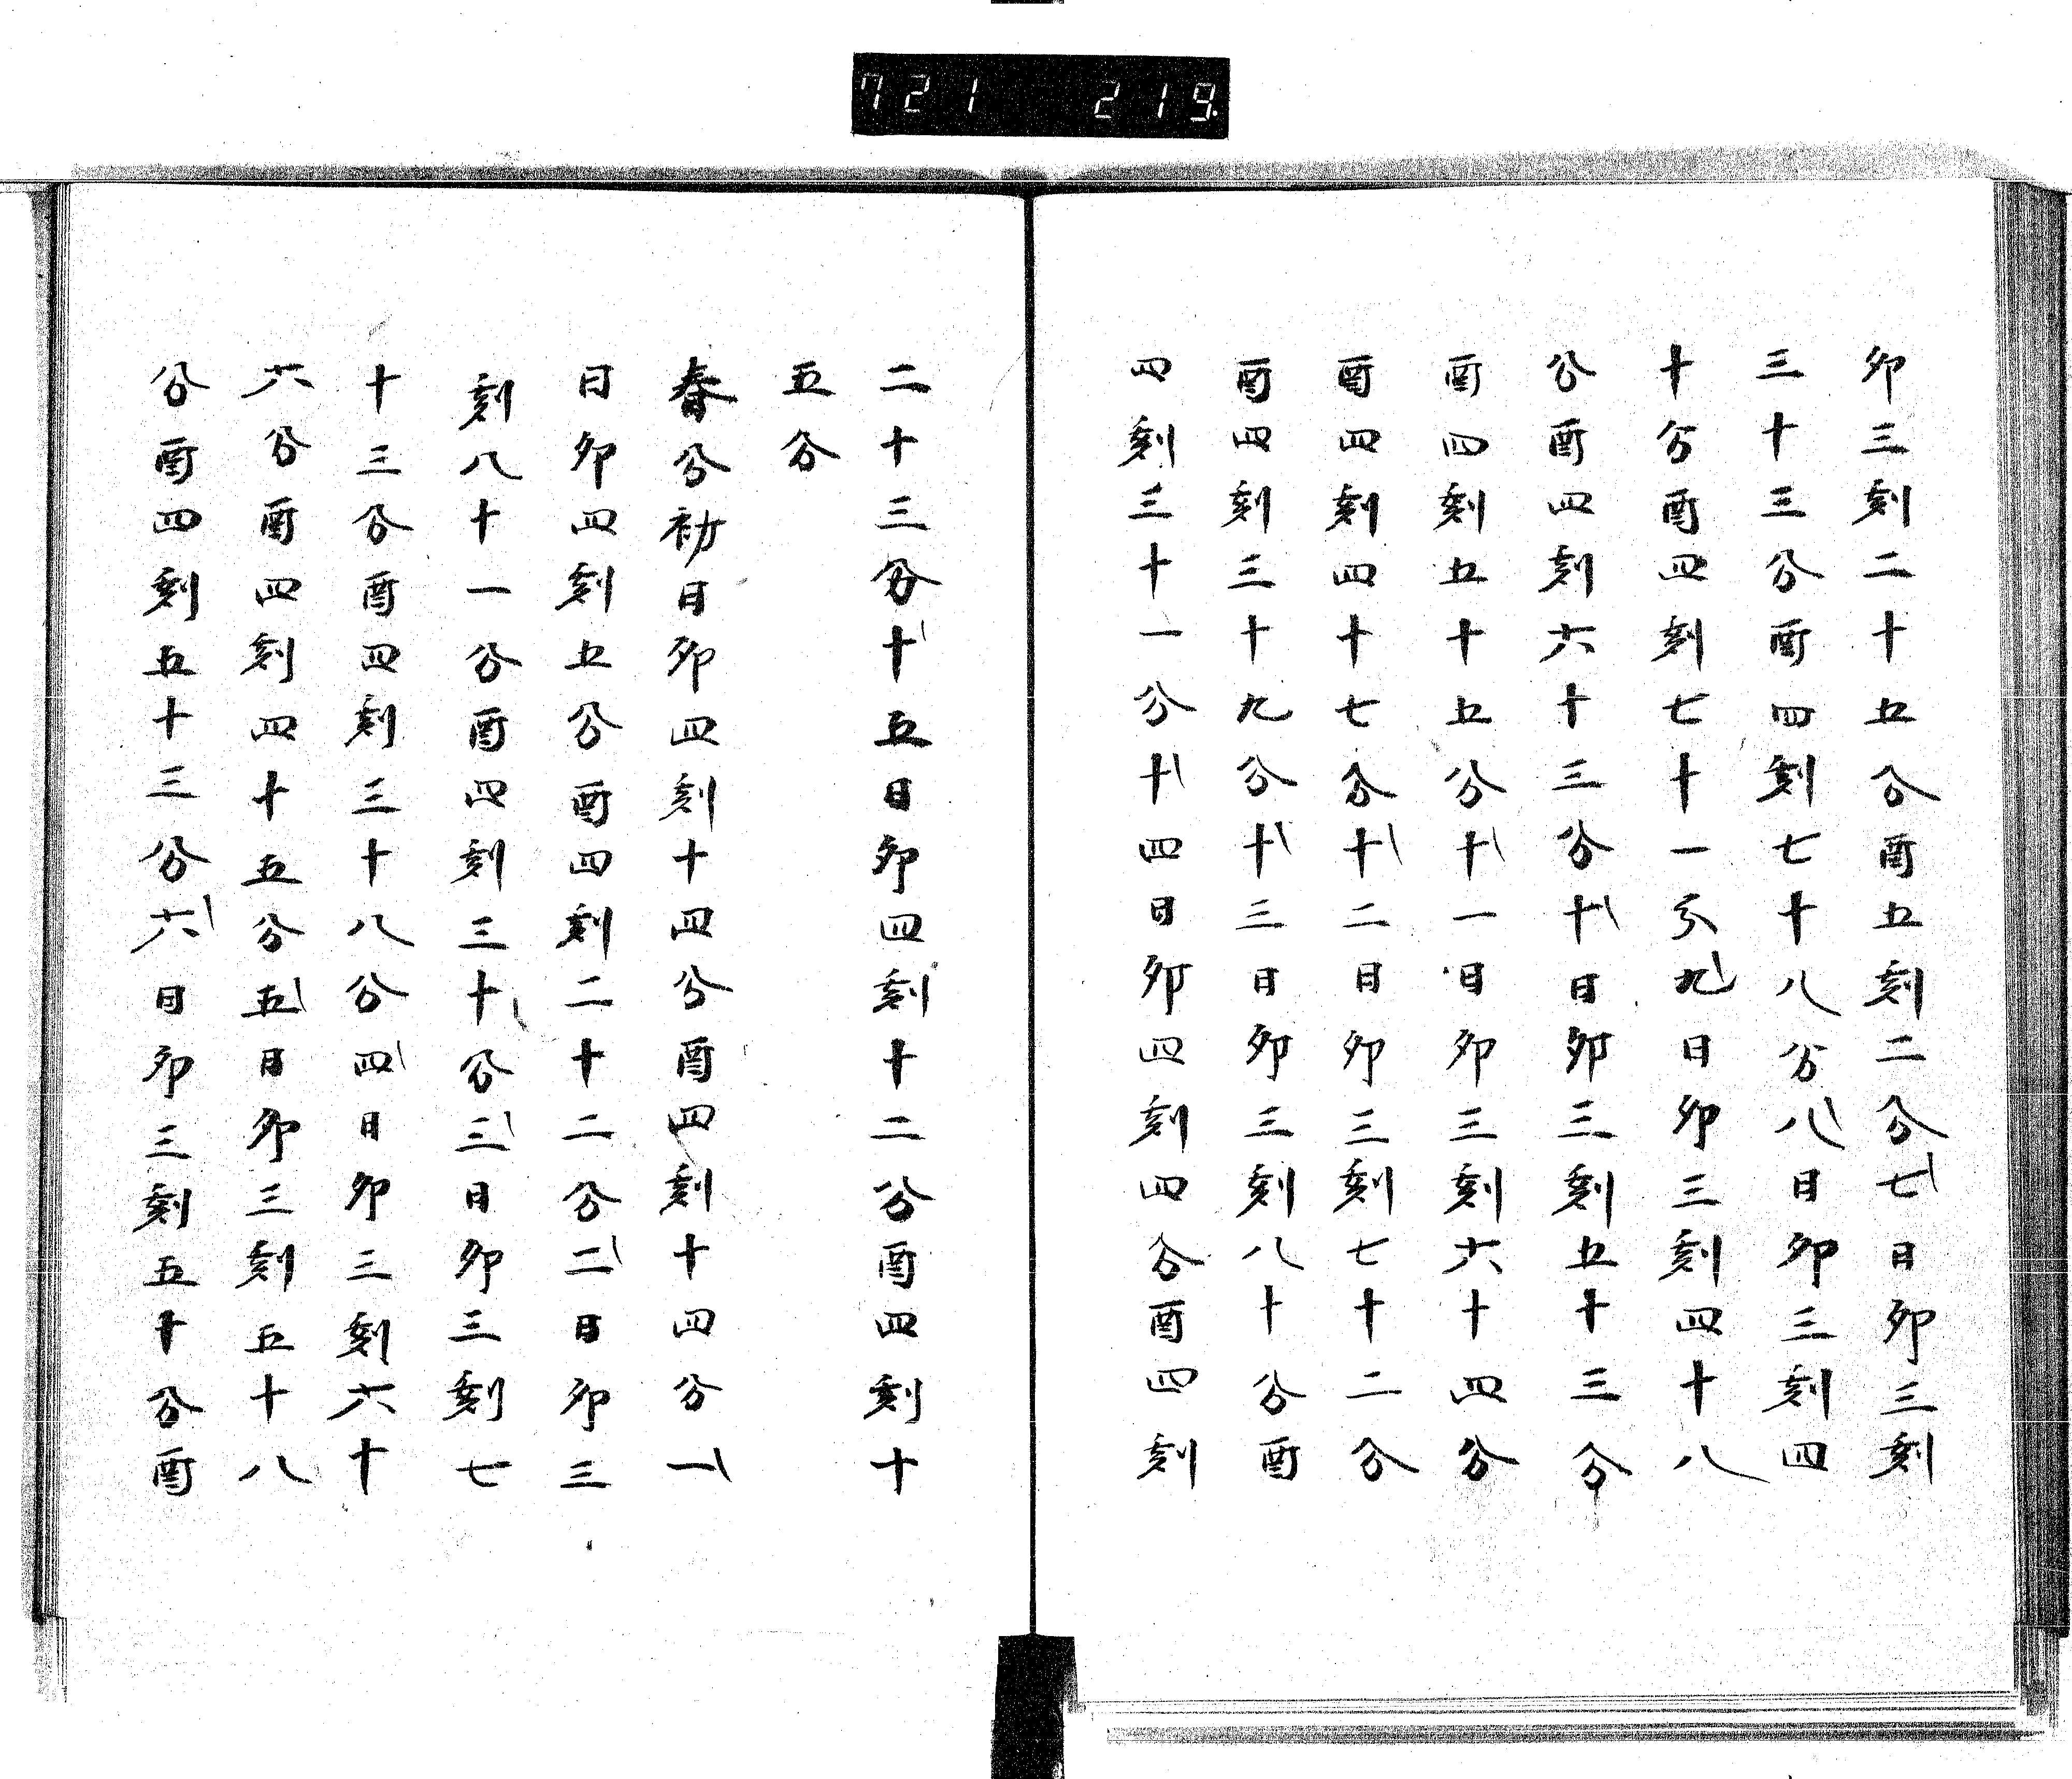 721 219.
卯三刻二十五分酉五刻二分七日卯三刻
三十三分酉四刻七十八分八日卯三刻四
十分酉四刻七十一分九日卯三刻四十八
分酉四刻六十三分十日卯三刻五十三分
酉四刻五十五分十一日卯三刻六十四分
酉四刻四十七分十二日卯三刻七十二分
酉四刻三十九分十三日卯三刻八十分酉
四刻三十一分十四日卯四刻四分酉四刻
二十三分十五日卯四刻十二分酉四刻十
五分
春分初日卯四刻十四分酉四刻十四分一
日卯四刻五分酉四刻二十二分二日卯三
刻八十一分酉四刻三十分三日卯三刻七
十三分酉四刻三十八分四日卯三刻六十
六分酉四刻四十五分五日卯三刻五十八
分酉四刻五十三分六日卯三刻五十分酉